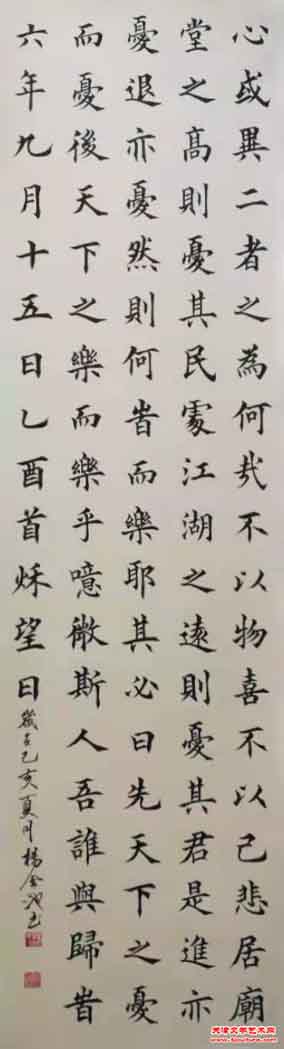 心或異二者之為何哉不以物喜不以己悲居廟
堂之高則憂其民處江湖之遠則憂其君是進亦
憂退亦憂然則何旹而樂耶其必曰先天下之憂
而憂後天下之樂而樂乎噫微斯人吾誰與歸旹
六年九月十五日乙酉首秌望日
歲在己亥夏月楊金
天津文学艺术网